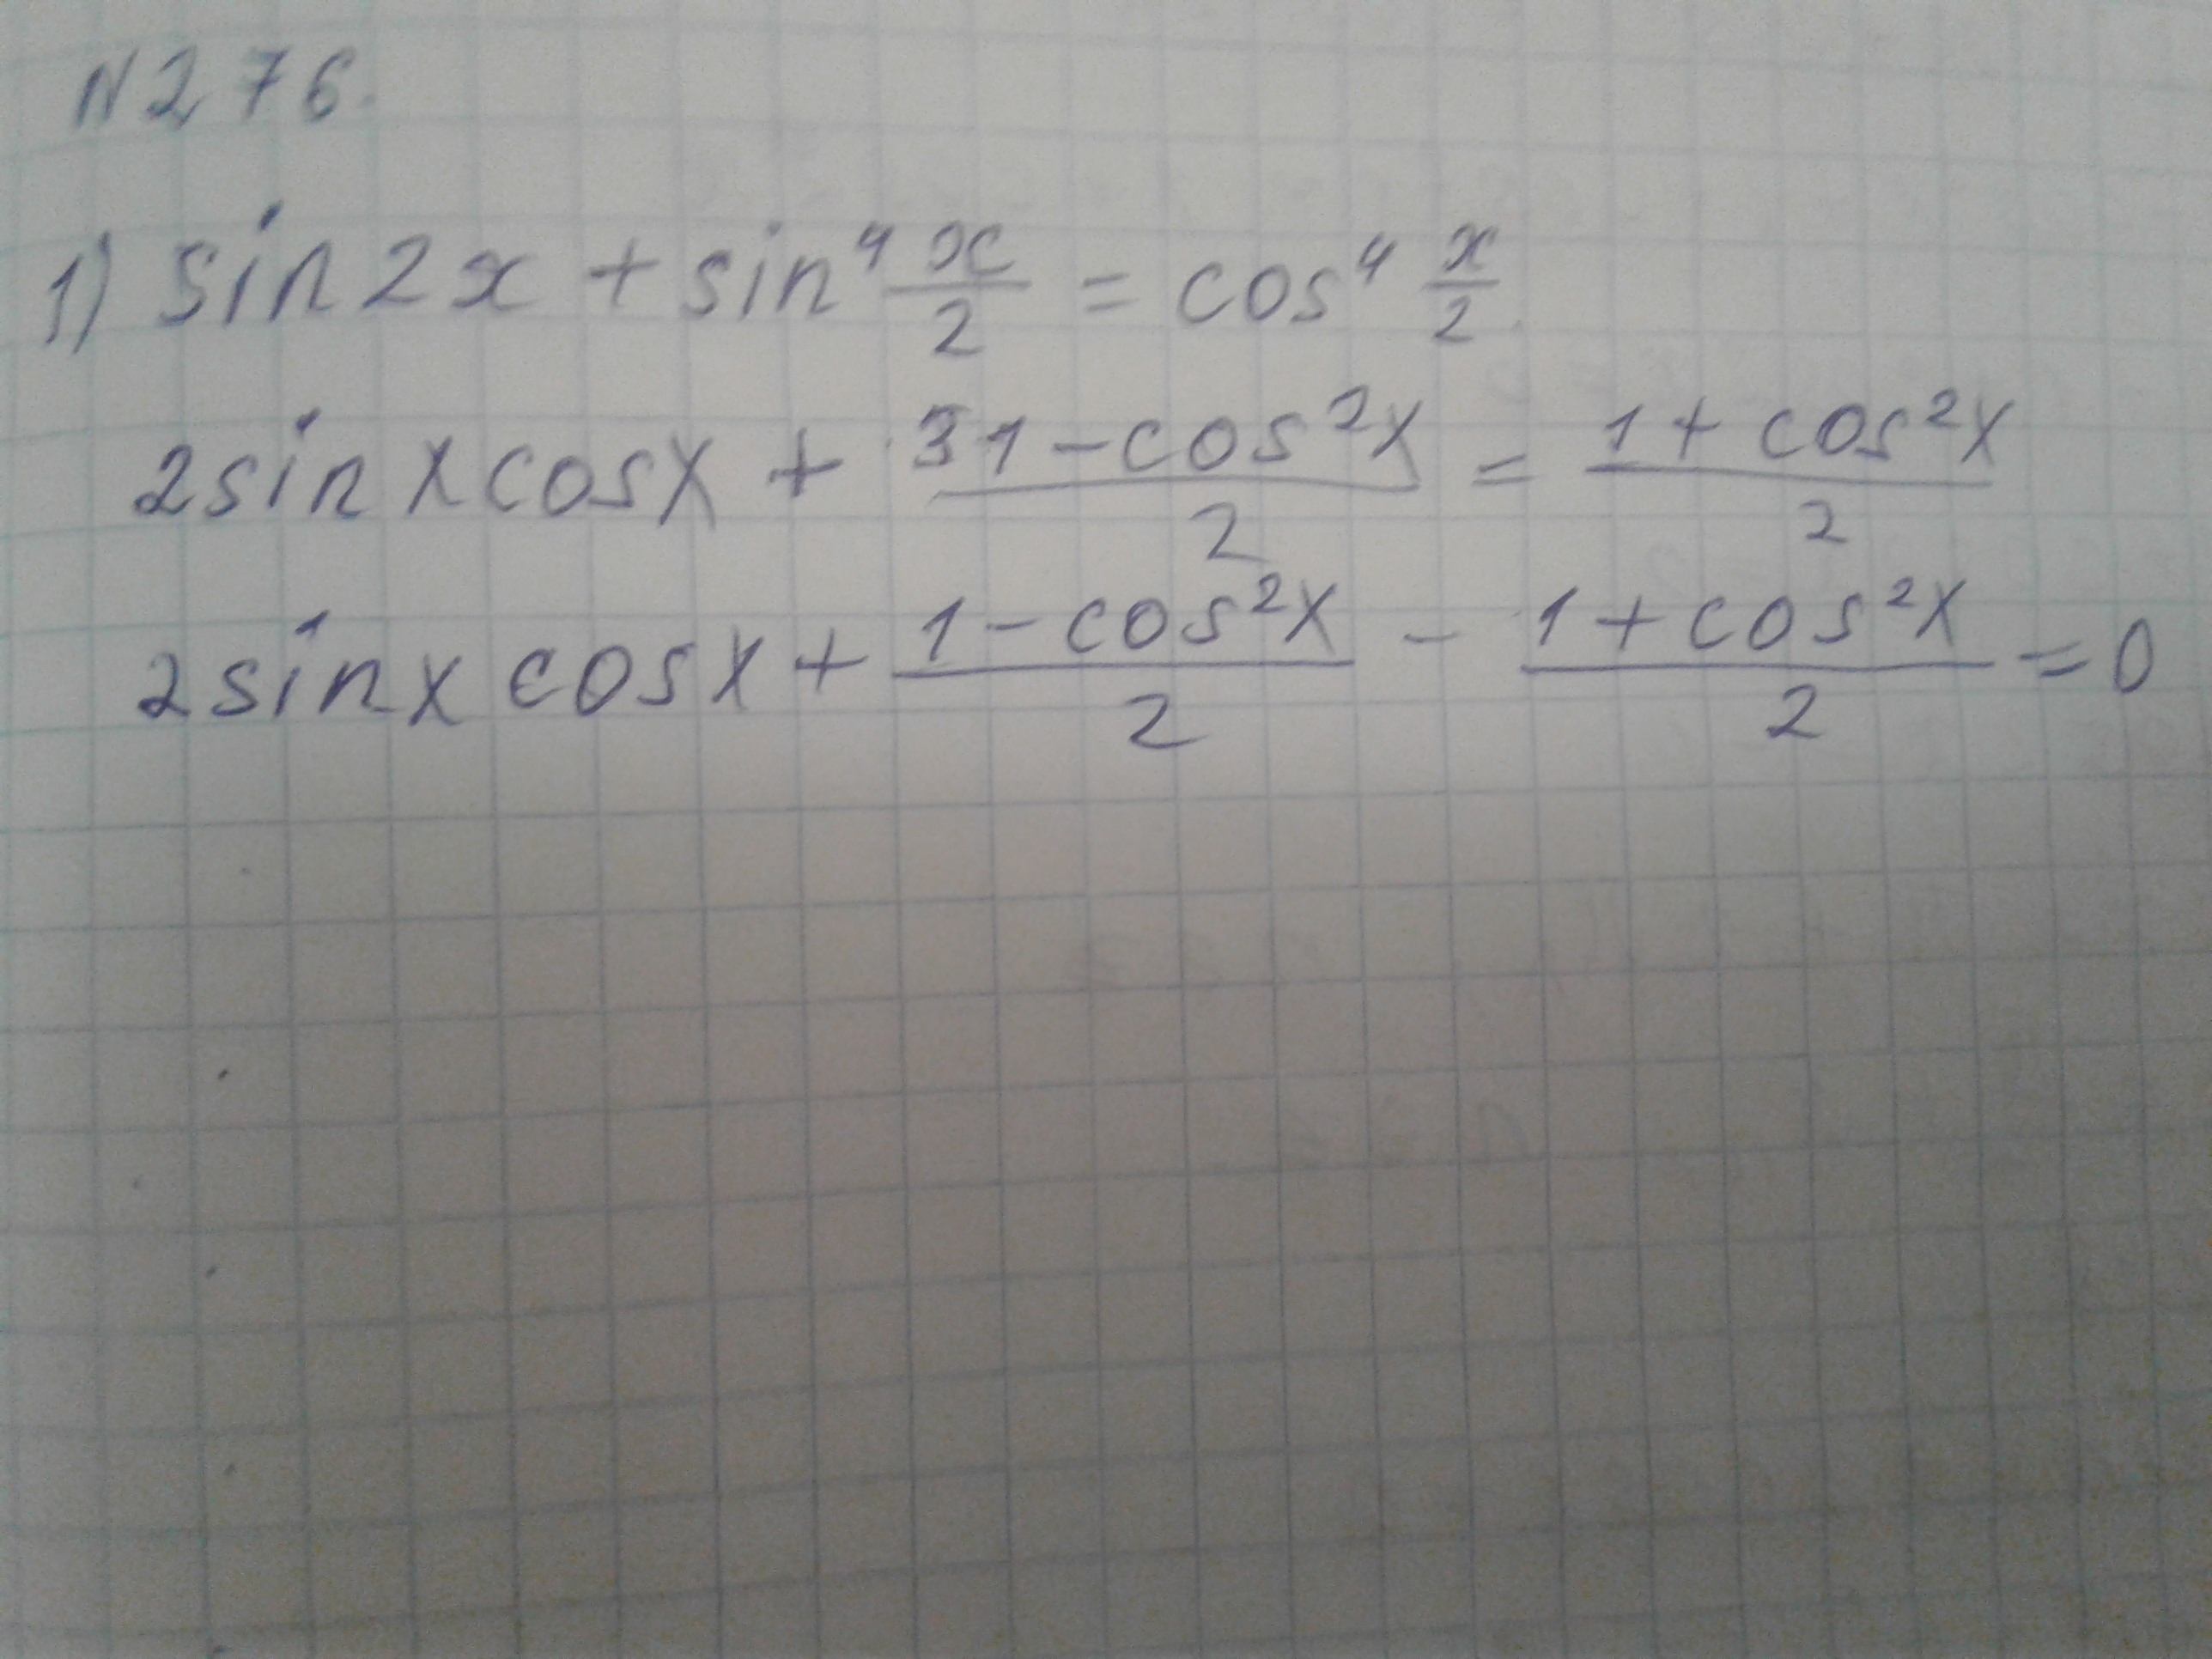 N276.
1) sin2x + sin⁴ x/2 = cos⁴ x/2
2sinxcosx + 31-cos²x/2 = 1+cos²x/2
2sinxcosx + 1-cos²x/2 - 1+cos²x/2 = 0